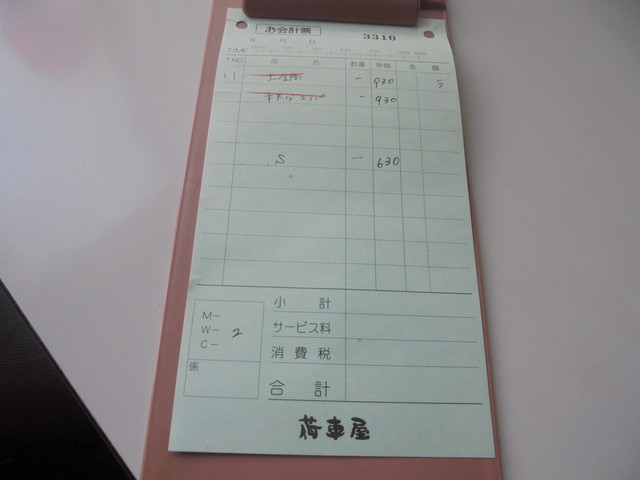 お会計票 3310
年 月 日
TIME
T.NO. 品 名 数量 単価 金 額
11 一 930 ラ
ナポリタン 一 930
S 一 630
小 計
M-
W- 2
サービス料
C-
消費税
係
合 計
荷車屋